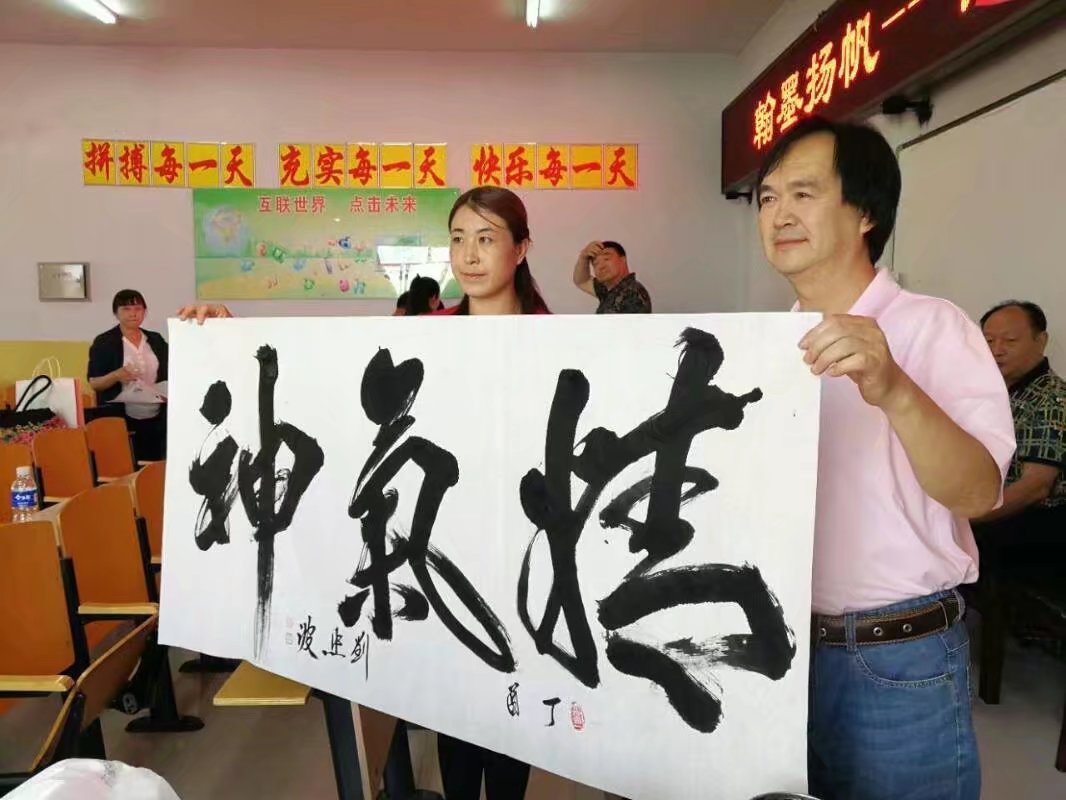 翰墨扬帆——
拼搏每一天 充实每一天 快乐每一天
互联世界 点击未来
精氣神
丁酉